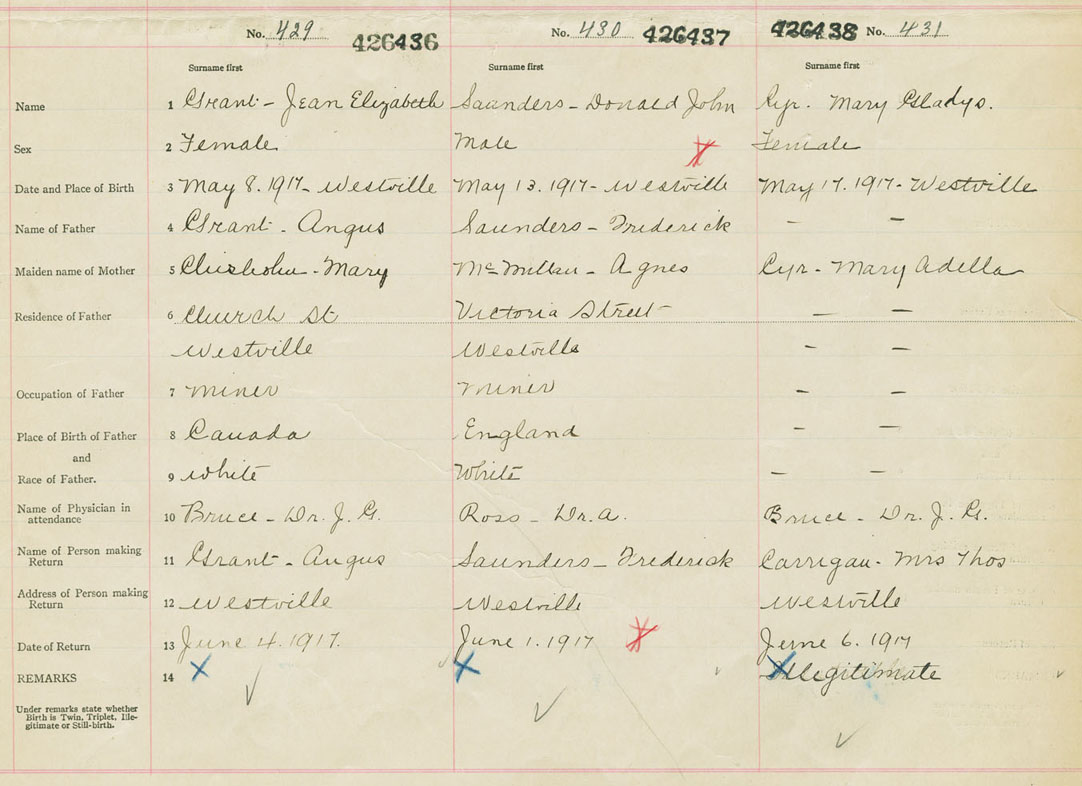 No. 429 426436 No. 430 426437 426438 No. 431
Surname first Surname first Surname first
Name 1 Grant - Jean Elizabeth Saunders - Donald John Cyr. Mary Gladys.
Sex 2 Female Male Female
Date and Place of Birth 3 May 8. 1917 - Westville May 13. 1917 - Westville May 17. 1917 - Westville
Name of Father 4 Grant - Angus Saunders - Frederick — —
Maiden name of Mother 5 Chisholm - Mary McMillan - Agnes Cyr - Mary Adella
Residence of Father 6 Church St Victoria Street — —
Westville Westville — —
Occupation of Father 7 Miner Miner — —
Place of Birth of Father 8 Canada England — —
and
Race of Father. 9 White White — —
Name of Physician in
attendance 10 Bruce - Dr. J. G. Ross - Dr. A. Bruce - Dr. J. G.
Name of Person making
Return 11 Grant - Angus Saunders - Frederick Carrigan - Mrs Thos
Address of Person making
Return 12 Westville Westville Westville
Date of Return 13 June 4. 1917. June 1. 1917 June 6. 1917
REMARKS 14 Illegitimate
Under remarks state whether
Birth is Twin, Triplet, Ille-
gitimate or Still-birth.